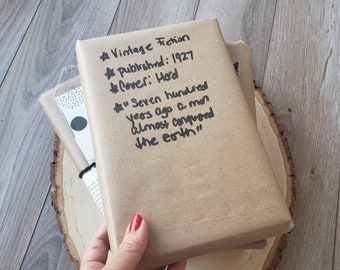 ★ Vintage Fiction
★ published: 1927
★ Cover: Hard
★ "Seven hundred
years ago a man
almost conquered
the earth"